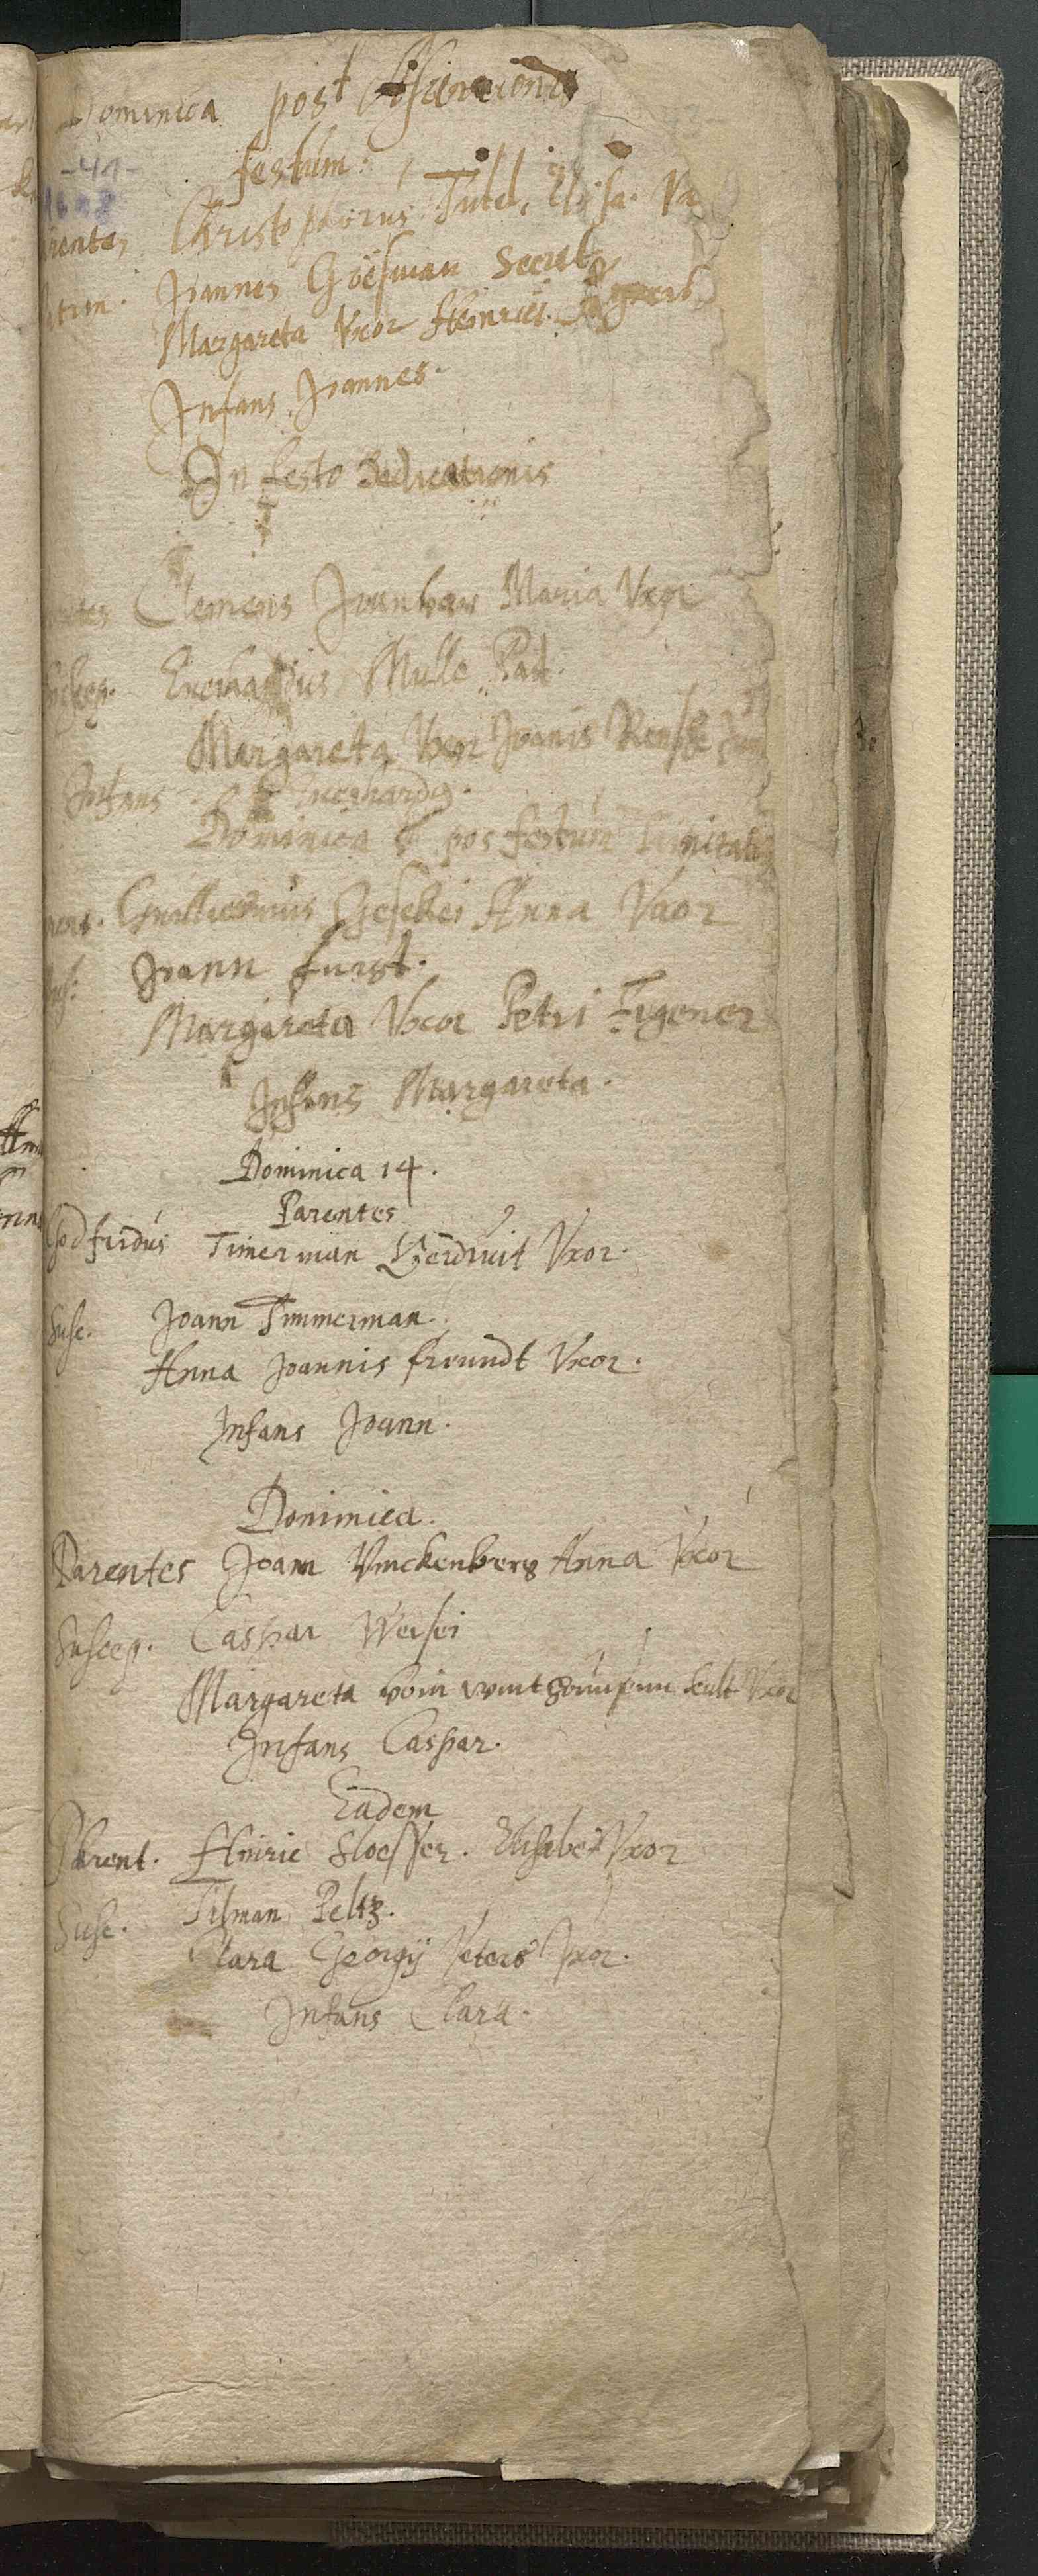 Dominica post Assumtionis
festum.
-41-
Christophorus Tutel, Elisa. Vx
Joannes Göesman Secret
Margareta Vxor Henrici
Infans Joannes.
In festo Dedicationis
Clemens Maria Vxor
Suscep. Euerhardus Mulle Past.
Margareta Vxor Joanis
Infans Euerhardus.
Dominica pos festum Trinitatis
Guilhelmus Anna Vxor
Joann Furst.
Margareta Vxor Petri Figener
Infans Margareta.
Dominica 14.
Parentes
Godfridus Timerman Gerdruit Vxor.
Susc. Joann Timmerman.
Anna Joannis freundt Vxor.
Infans Joann.
Dominica.
Parentes Joann Vinckenberg Anna Vxor
Suscep. Caspar Weisei
Margareta Vxor
Infans Caspar.
Eadem
Parent. Henric Sloesser. Elisabet Vxor
Susc. Tilman Peltz.
Clara Georgij Veters Vxor.
Infans Clara.